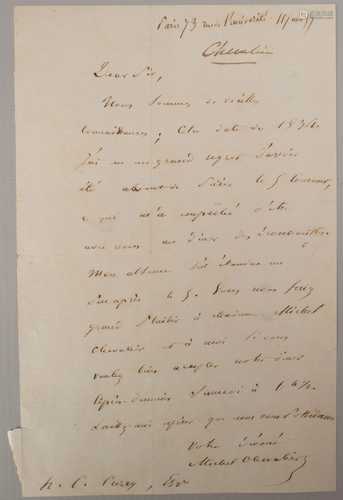 Paris 73 rue de l'Université 11 juin 57
Chevalier
Dear Sir,
Nous sommes de vieilles
connaissances, cela date de 1834.
J'ai eu un grand regret d'avoir
été absent de le 5 courant,
ce qui m'a empêché d'être
avec vous au dîner des économistes.
Mon absence s'est étendue un
peu après le 5. Vous nous feriez
grand plaisir à Madame Michel
Chevalier et à moi si vous
vouliez bien accepter notre dîner
après-demain Samedi à 6 h ½.
Laissez-moi espérer que nous vous
votre dévoué
Michel Chevalier
H. C. Carey, Esqre